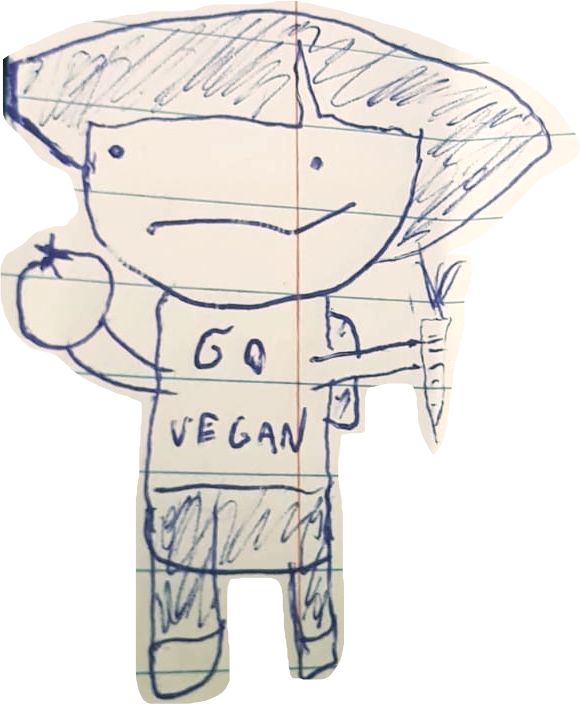 GO
VEGAN